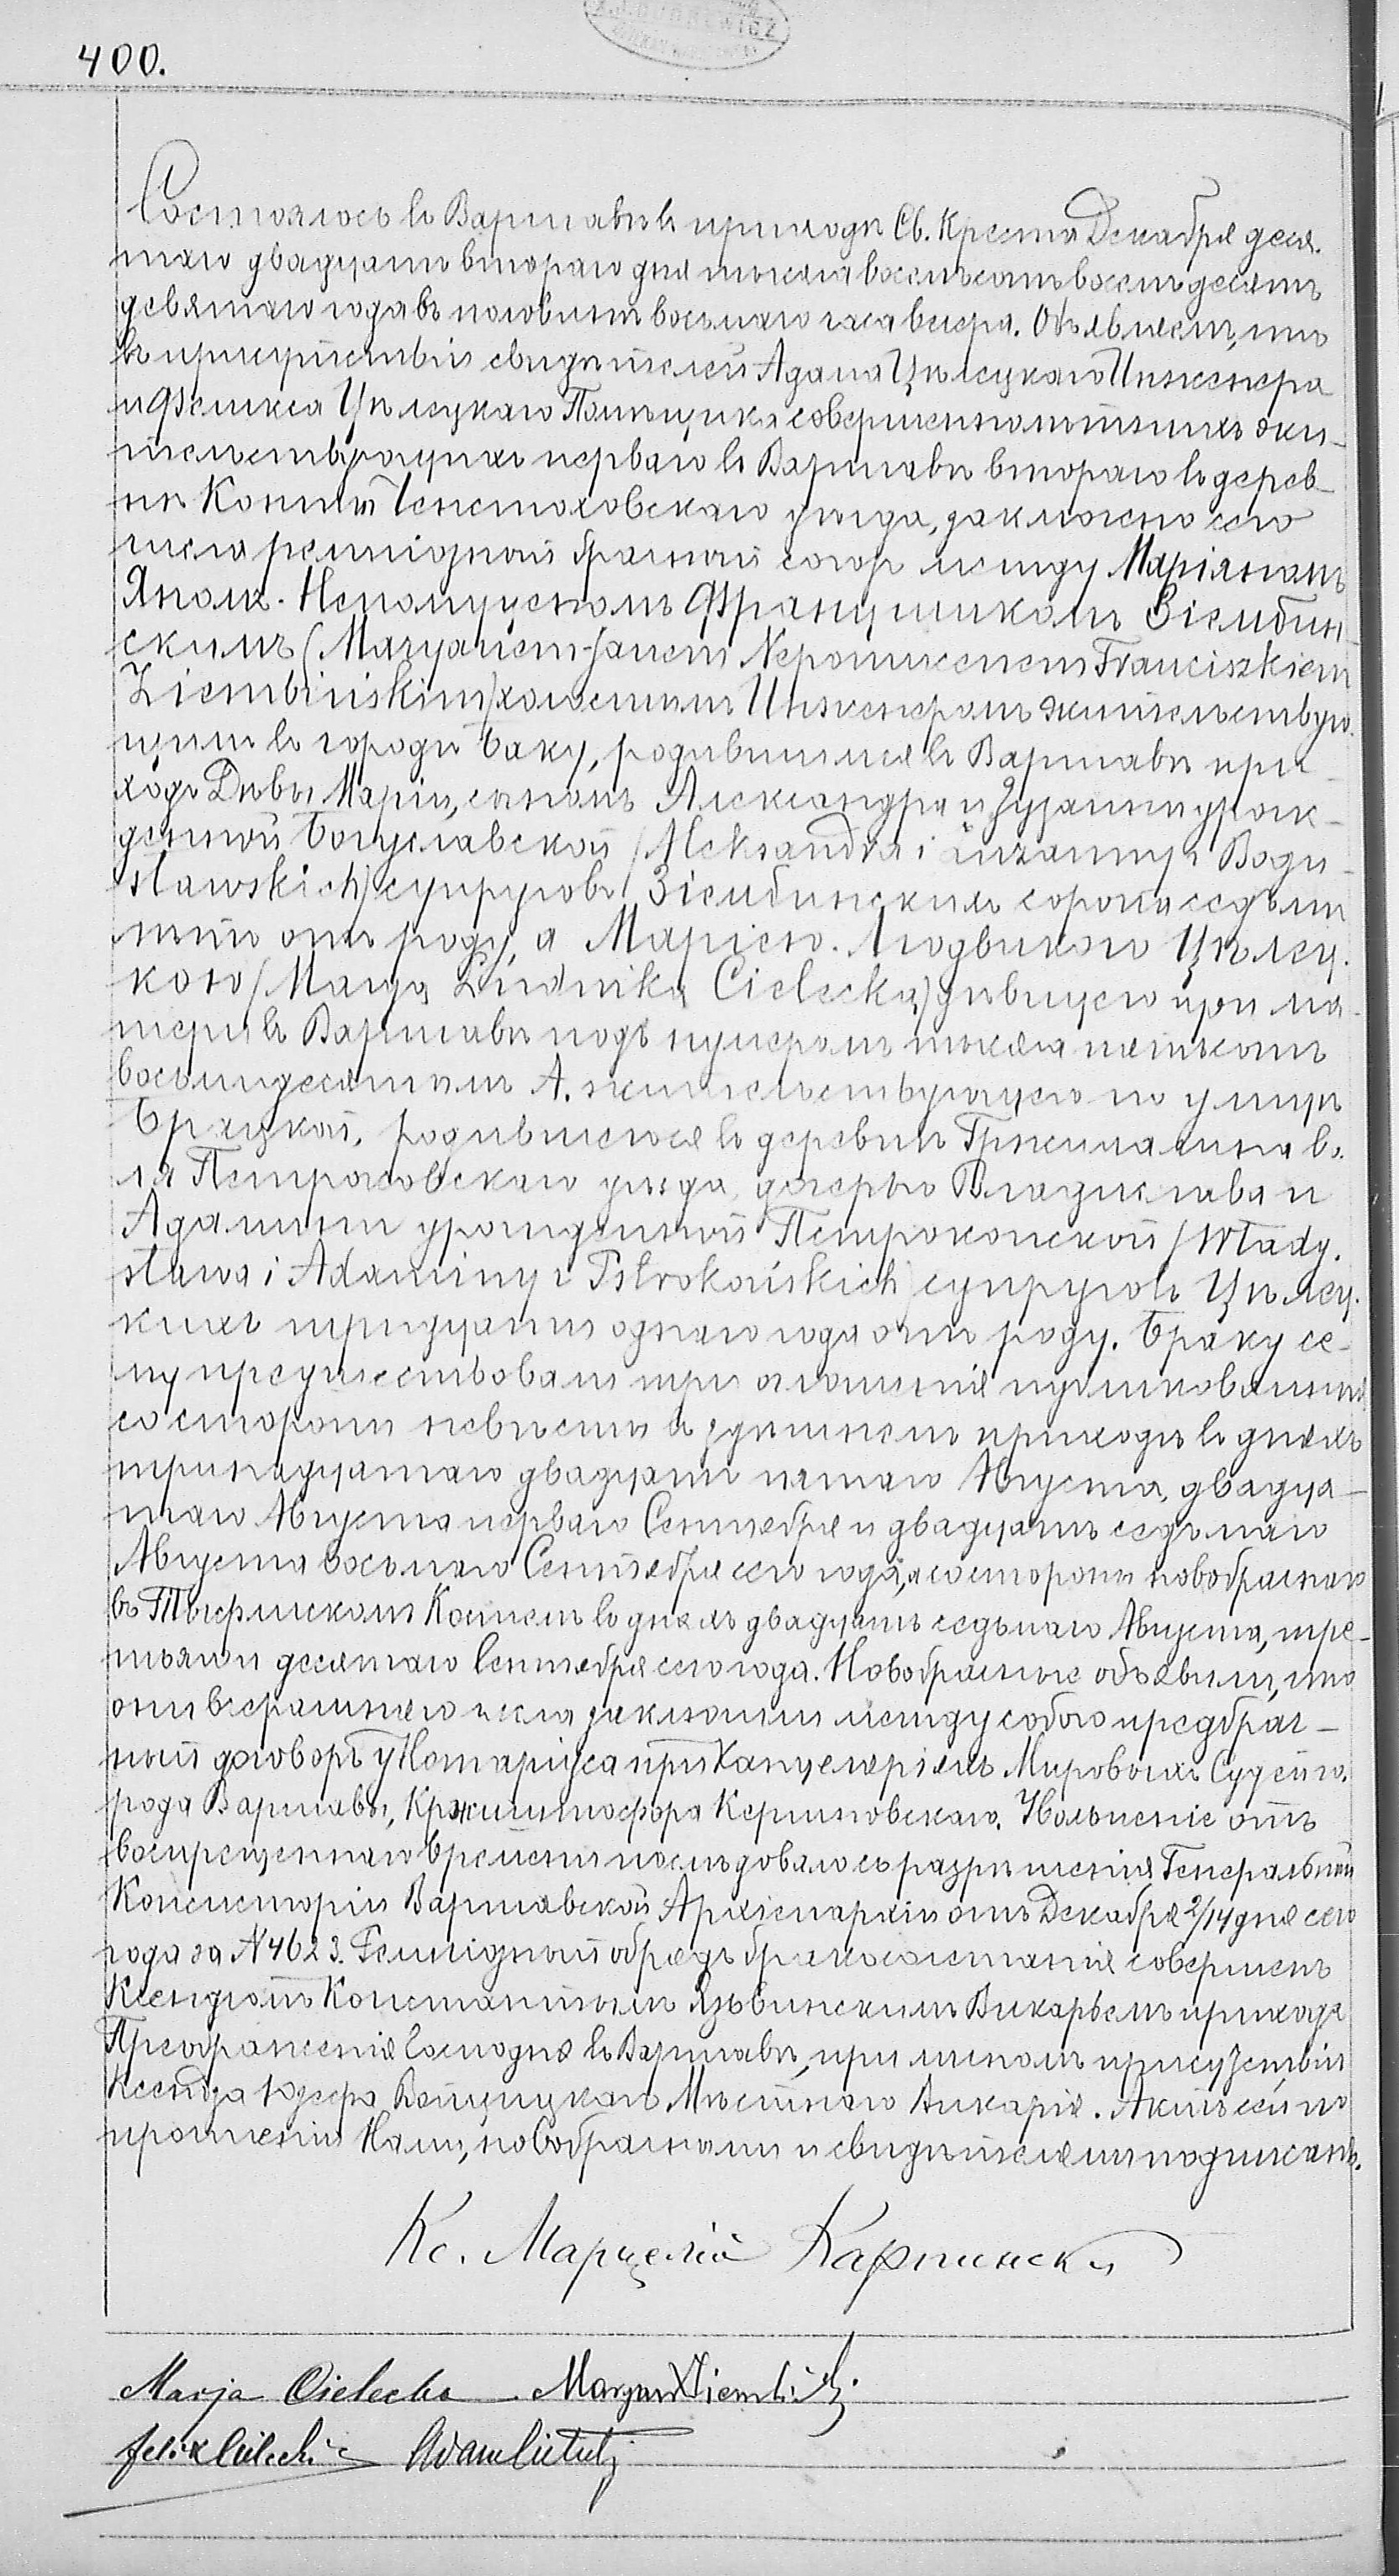 400.
Состоялось въ Варшавѣ въ приходѣ Св. Креста Декабря деся-
таго двадцать втораго дня тысяча восемьсотъ восемьдесятъ
девятаго года въ половинѣ восьмаго часа вечера. Объявляемъ, что
въ присутствіи свидѣтелей Адама Цѣлецкаго Инженера
и Феликса Цѣлецкаго Помѣщика совершеннолѣтнихъ жи-
тельствующихъ перваго въ Варшавѣ втораго въ дерев-
нѣ Конинъ Ченстоховскаго уѣзда, заключенъ сего
числа религіозный брачный союзъ между Маріаномъ
Яномъ-Непомуценомъ Францишкомъ Зіембин-
скимъ (Maryanem-Janem Nepomucenem Franciszkiem
Ziembińskim) холостымъ Инженеромъ жительствую-
щимъ въ городѣ Баку, родившимся въ Варшавѣ при-
ходѣ Дѣвы Маріи, сыномъ Александра и Зузанны урож-
денной Богуславской (Aleksandra i Zuzanny z Bogu-
sławskich) супруговъ Зіембинскихъ сорока седьми
лѣтъ отъ роду, а Маріею-Людвикою Цѣлец-
кою (Marya Ludwika Cielecka) дѣвицею при ма-
тери въ Варшавѣ подъ нумеромъ тысяча пятьсотъ
восьмидесятымъ А. жительствующею по улицѣ
Брацкой, родившеюся въ деревнѣ Гржималина во-
ля Петроковскаго уѣзда, дочерью Владислава и
Адамины урожденной Пстроконской (Włady-
sława i Adaminy z Pstrokońskich) супруговъ Цѣлец-
кихъ тридцати однаго года отъ роду. Браку се-
му предшествовали три оглашенія публикованныя
со стороны невѣсты въ здѣшнемъ приходѣ въ дняхъ
тринадцатаго двадцать пятаго Августа, двадца-
таго Августа перваго Сентября и двадцать седьмаго
Августа восьмаго Сентября сего года, а со стороны новобрачнаго
въ Костелѣ въ дняхъ двадцать седьмаго Августа, тре-
тьяго и десятаго Сентября сего года. Новобрачные объявили, что
они вчерашняго числа заключили между собою предбрач-
ный договоръ у Нотаріуса при Канцеляріяхъ Мировыхъ Судей го-
рода Варшавы, Кржиштофора Керсновскаго. Увольненіе отъ
воспрещеннаго времени послѣдовало съ разрѣшенія Генеральной
Консисторіи Варшавской Архіепархіи отъ Декабря 2/14 дня сего
года за N 4623. Религіозный обрядъ бракосочетанія совершенъ
Ксендзомъ Константыномъ Викарьемъ прихода
Преображенія Господня въ Варшавѣ, при личномъ присудствіи
Ксендза Мѣстнаго Викарія. Актъ сей по
прочтеніи Нами, новобрачными и свидѣтелями подписанъ.
Кс. Марцелій Карпински
Marja Cielecka Maryan Ziembiński
Felix Cielecki Adam Cielecki